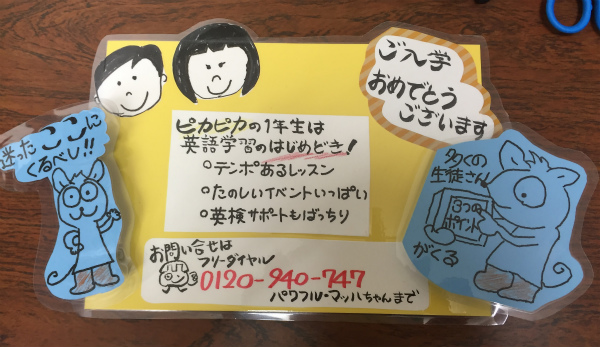 ご入学
おめでとう
ございます
迷った ここに
くるべし!!
ピカピカの1年生は
英語学習のはじめどき!
○テンポあるレッスン
○たのしいイベントいっぱい
○英検サポートもばっちり
多くの
生徒さん
3つの
ポイント
がくる
お問い合せは
フリーダイヤル
0120-940-747
パワフル・マッハちゃんまで